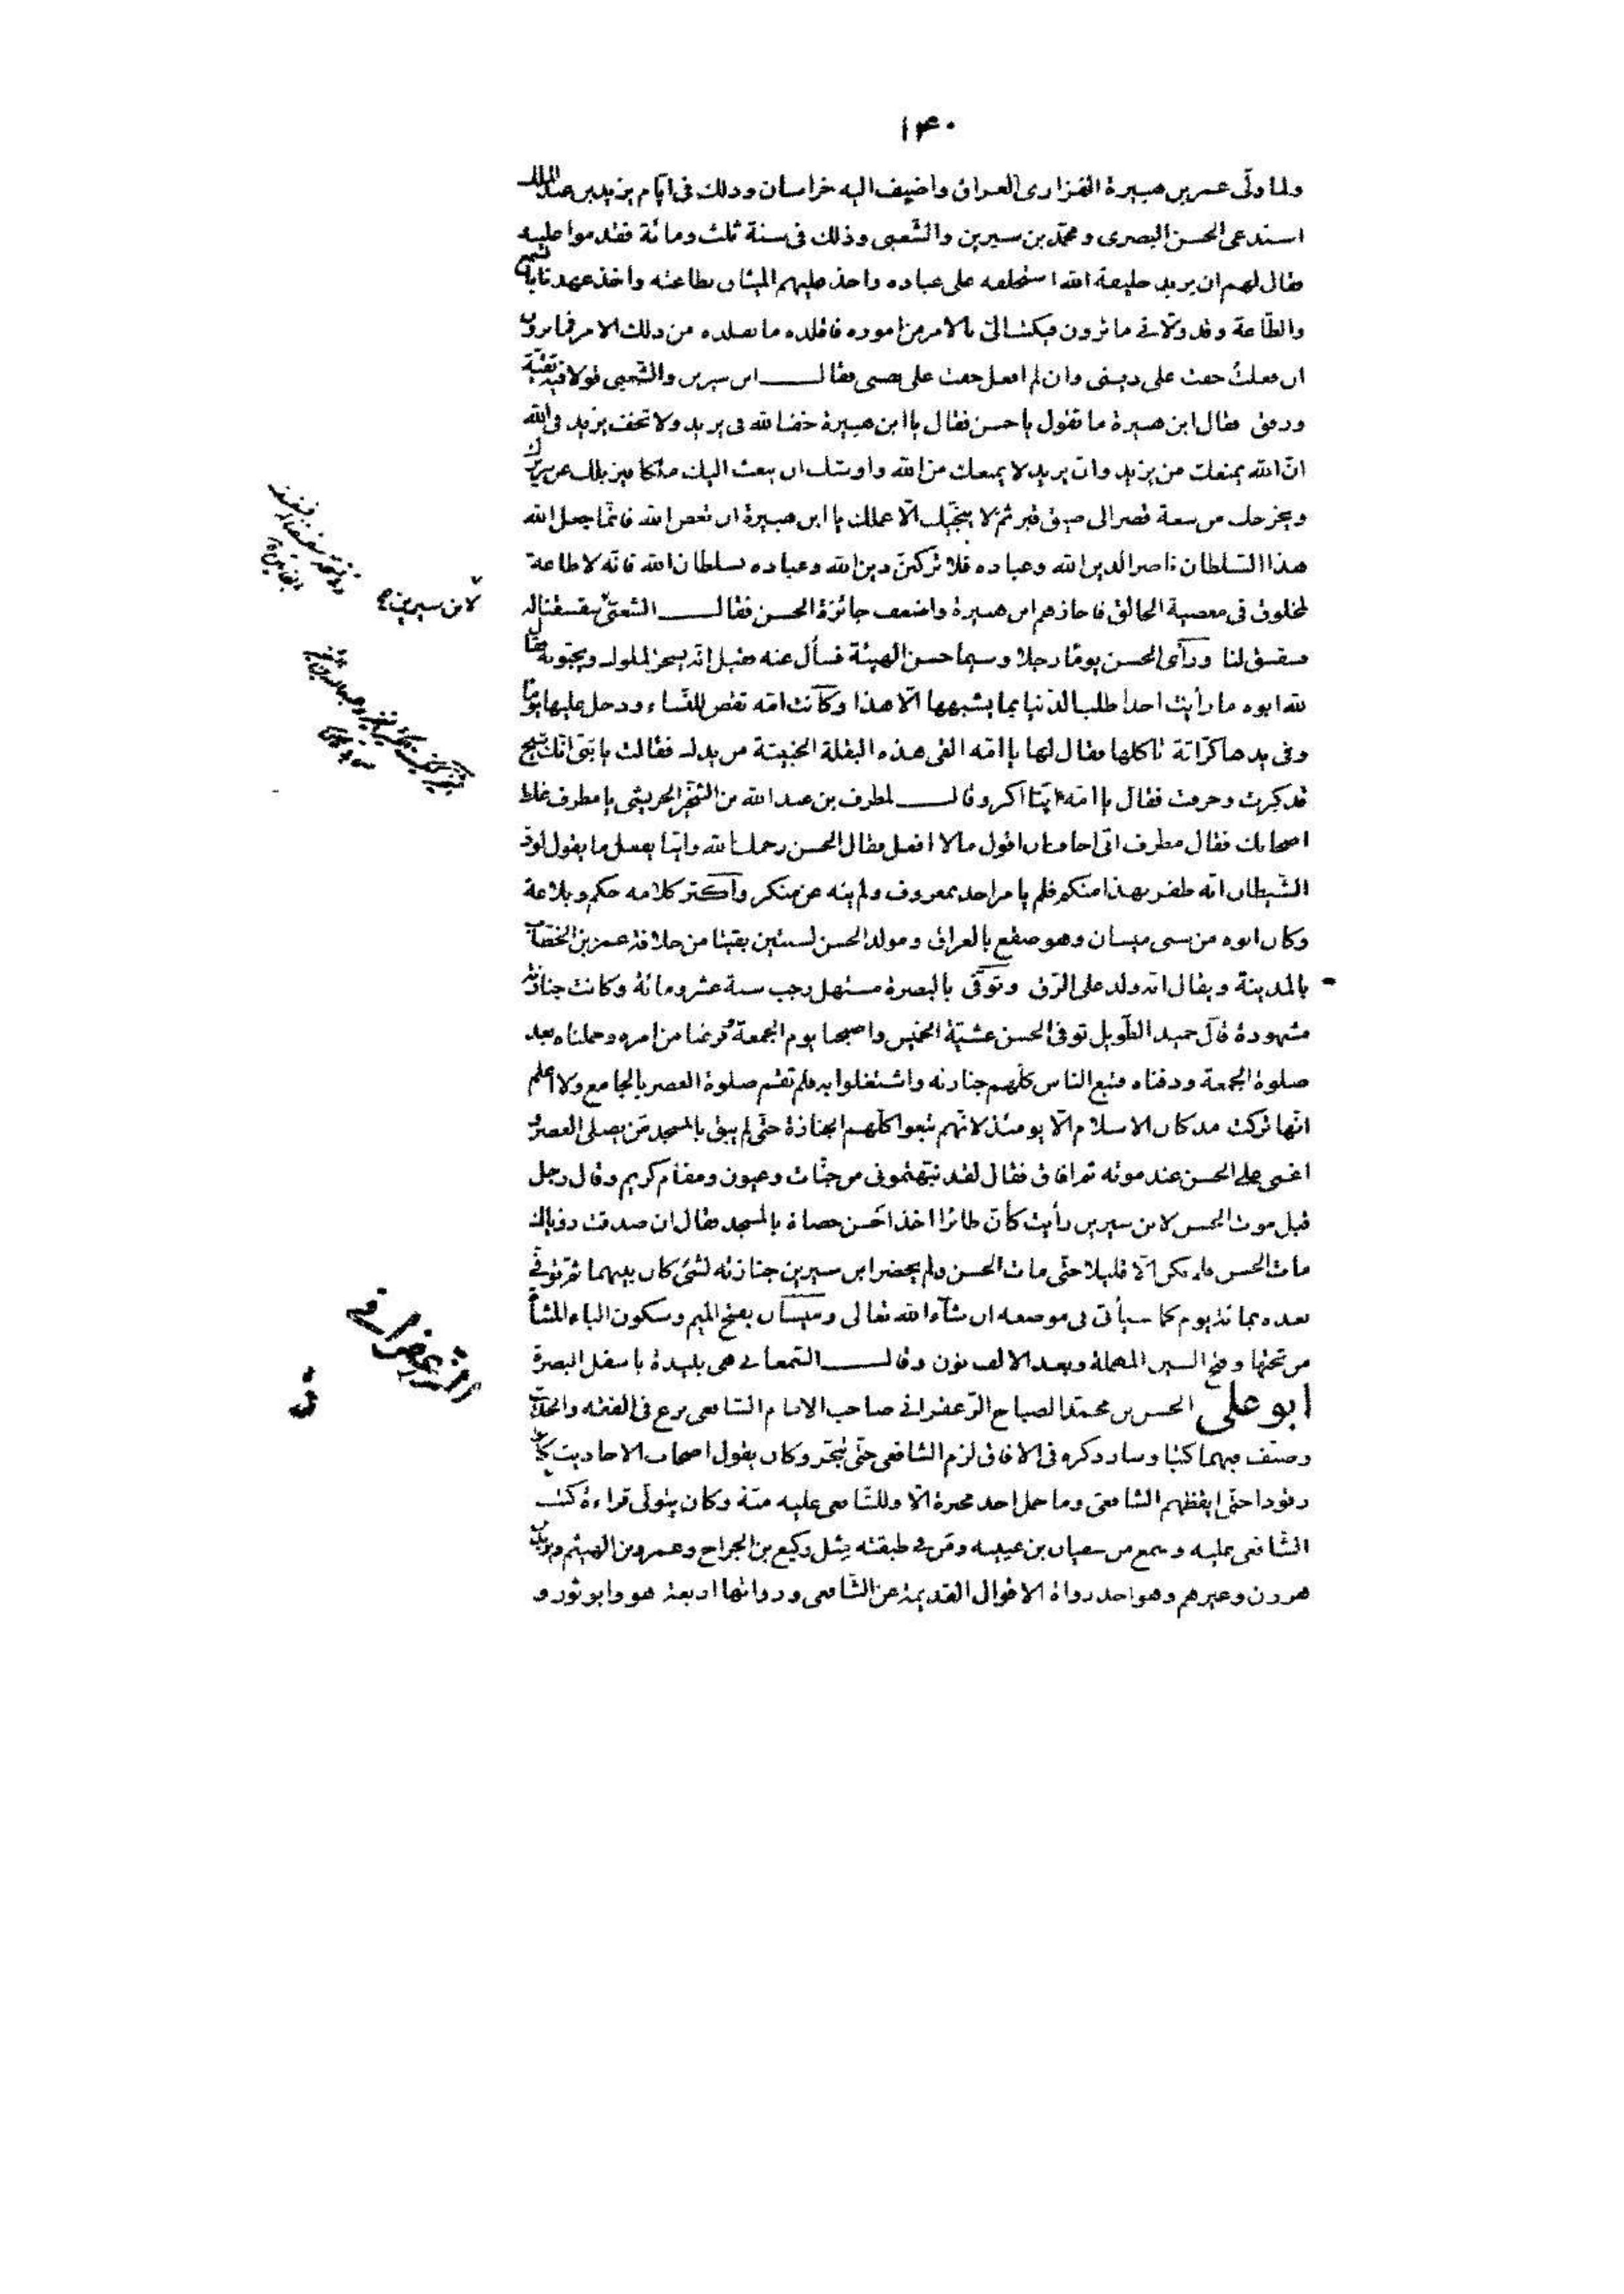 ١٣٠
ولما ولّى عمر بن هبيرة الفزارى العراق واضيف اليه خراسان وذلك فى ايّام يزيد بن عبد الملك
استدعى الحسن البصرى ومحمّد بن سيرين والشّعبى وذلك فى سنة ثلث ومائة فقدموا عليه
فقال لهم ان يزيد خليفة الله استخلفه على عباده واخذ عليهم الميثاق بطاعته واخذ عهدنا بالسّمع
والطّاعة وقد ولّانى ما ترون فيكتب الىّ بالامر من اموره فاقلده ما تقلده من ذلك الامر فما ترون
ان فعلتُ خفت على دينى وان لم افعل خفت على نفسى فقال ابن سيرين والشّعبى قولا فيه تقيّة
ورفق فقال ابن هبيرة ما تقول يا حسن فقال يا ابن هبيرة خف الله فى يزيد ولا تخف يزيد فى الله
انّ الله يمنعك من يزيد وان يزيد لا يمنعك من الله واوشك ان يبعث اليك ملكا فيزيلك عن سريرك
ويخرجك من سعة قصر الى ضيق قبر ثمّ لا ينجّيك الّا عملك يا ابن هبيرة ان تعص الله فانّما جعل الله
هذا السّلطان ناصر الدين الله وعباده فلا تركبنّ دين الله وعباده بسلطان الله فانّه لا طاعة
لمخلوق فى معصية الخالق فاجازهم ابن هبيرة واضعف جائزة الحسن فقال الشعبىّ سفسفنا له
فسفسف لنا ورأى الحسن يومًا رجلا وسيما حسن الهيئة فسأل عنه فقيل انّه يسخر للملوك ويحبّونه فقال
لله ابوه ما رأيت احدا طلب الدّنيا بما يشبهها الّا هذا وكانت امّه تقص للنّساء ودخل عليها يومًا
وفى يدها كرّاثة تاكلها فقال لها يا امّه القى هذه البقلة الخبيثة من يدك فقالت يا بنىّ انّك شيخ
قد كبرت وخرفت فقال يا امّه ايّنا اكبر وقال لمطرف بن عبد الله بن الشّخّير الحريشى يا مطرف عظ
اصحابك فقال مطرف انّى اخاف ان اقول ما لا افعل فقال الحسن رحمك الله وايّنا يفعل ما يقول لودّ
الشّيطان انّه ظفر بهذا منكم فلم يامر احد بمعروف ولم ينه عن منكر واكثر كلامه حكم وبلاغة
وكان ابوه من سبى ميسان وهو صقع بالعراق ومولد الحسن لسنتين بقيتا من خلافة عمر بن الخطّاب
بالمدينة ويقال انّه ولد على الرّق وتوفّى بالبصرة مستهل رجب سنة عشر ومائة وكانت جنازته
مشهودة قال حميد الطّويل توفى الحسن عشيّة الخميس واصبحنا يوم الجمعة ففرغنا من امره وحملناه بعد
صلوة الجمعة ودفناه فتبع الناس كلّهم جنازته واشتغلوا به فلم تقم صلوة العصر بالجامع ولا اعلم
انّها تركت مذ كان الاسلام الّا يومئذ لانّهم تبعوا كلّهم الجنازة حتّى لم يبق بالمسجد من يصلى العصر و
اغمى على الحسن عند موته ثم افاق فقال لقد نبّهتمونى من جنّات وعيون ومقام كريم وقال رجل
قبل موت الحسن لابن سيرين رأيت كأنّ طائرا اخذ احسن حصاة بالمسجد فقال ان صدقت رؤياك
مات الحسن فلم يكن الّا قليلا حتّى مات الحسن ولم يحضر ابن سيرين جنازته لشئ كان بينهما ثم توفى
بعده بمائة يوم كما سيأتى فى موضعه ان شآء الله تعالى وميسان بفتح الميم وسكون الياء المثناة
من تحتها وفتح السين المهملة وبعد الالف نون وقال السّمعانى هى بليدة باسفل البصرة
ابو على الحسن بن محمّد الصباح الزّعفرانى صاحب الامام الشافعى برع فى الفقه والحديث
وصنّف فيهما كتبا وسار ذكره فى الافاق لزم الشافعى حتّى تبحّر وكان يقول اصحاب الاحاديث كانوا
رقودا حتّى ايقظهم الشافعى وما حمل احد محبرة الّا وللشّافعى عليه منّة وكان يتولّى قراءة كتب
الشّافعى عليه وسمع من سفيان بن عيينه ومن فى طبقته مثل وكيع بن الجراح وعمرو بن الهيثم ويزيد بن
هرون وغيرهم وهو احد رواة الاقوال القديمة عن الشّافعى ورواتها اربعة هو وابو ثور و
لابن سيرين
الزعفرانى